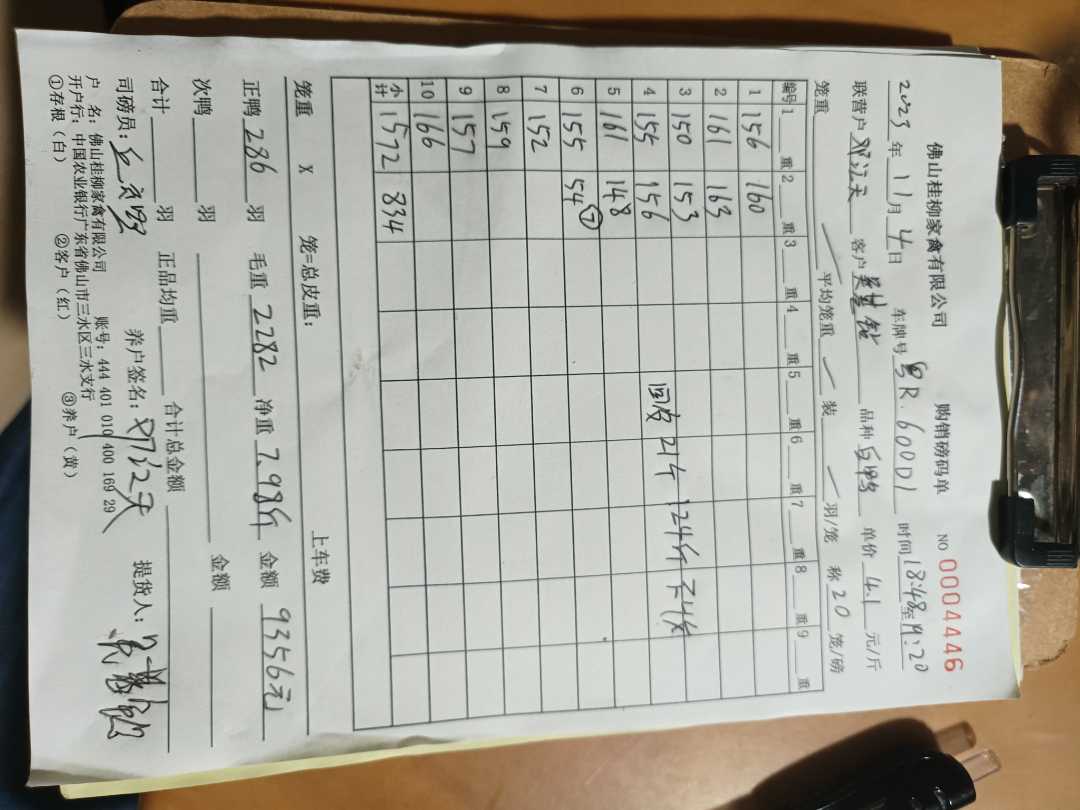 佛山桂柳家禽有限公司 购销磅码单 NO 0004446
2023年11月4日 车牌号 粤R.600D1 时间 18:48至19:20
联营户 客户 品种 白鸭 单价 4.1 元/斤
笼重 平均笼重 装 羽/笼 称 20 笼/磅
编号 1 重 2 重 3 重 4 重 5 重 6 重 7 重 8 重 9 重
1 156 160
2 161 163
3 150 153
4 155 156 回皮 21个 124斤
5 161 148
6 155 54⑦
7 152
8 159
9 157
10 166
小计 1572 834
笼重 X 笼=总皮重: 上车费
正鸭 286 羽 毛重 2282 净重 7.98斤 金额 9356元
次鸭 羽 金额
合计 羽 正品均重 合计总金额
司磅员: 养户签名: 提货人:
户 名: 佛山桂柳家禽有限公司 账号: 444 401 010 400 169 29
开户行: 中国农业银行广东省佛山市三水区三水支行
①存根(白) ②客户(红) ③养户(黄)